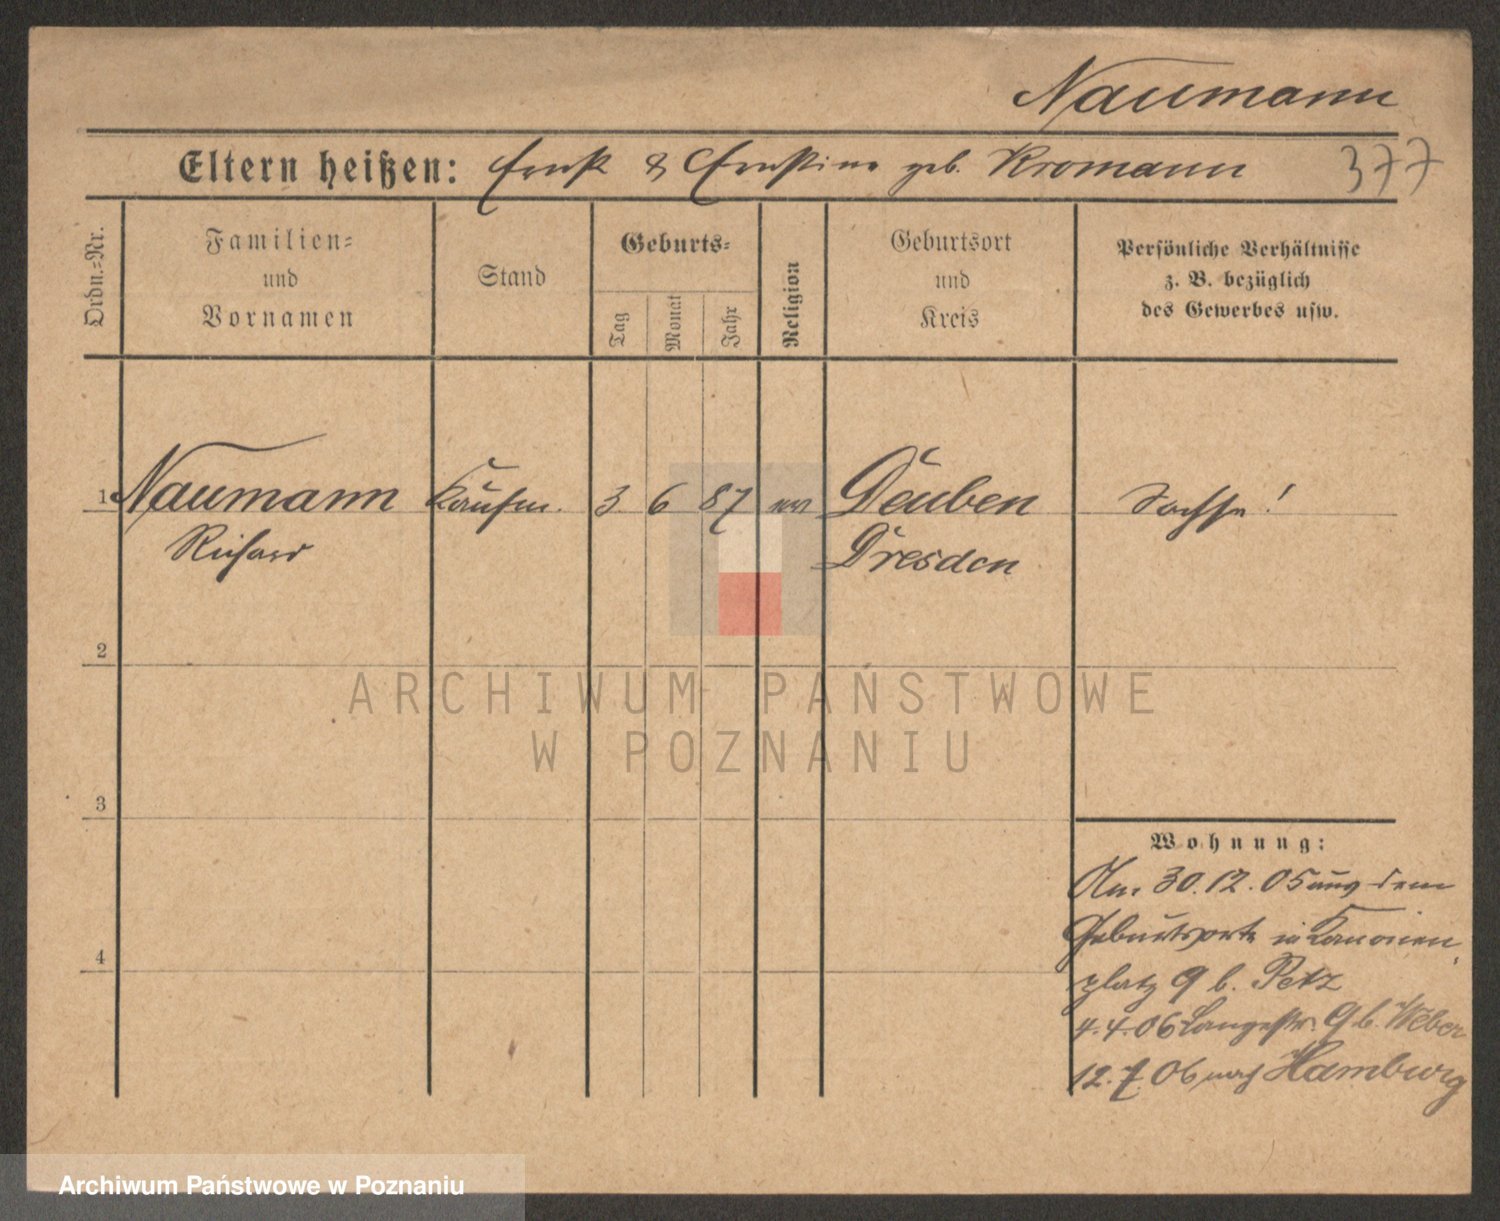 Naumann
Eltern heißen: Ernst & Ernstine geb. Kromann 377
Ordn.-Nr.
Familien-
und
Vornamen
Stand
Geburts-
Tag
Monat
Jahr
Religion
Geburtsort
und
Kreis
Persönliche Verhältnisse
z. B. bezüglich
des Gewerbes usw.
1 Naumann Kaufm. 3 6 87 ev Deuben Sachse!
Richard Dresden
2
ARCHIWUM PAŃSTWOWE
W POZNANIU
3
Wohnung:
Am 30.12.05 aus dem
Geburtsorte in Kanonen
4
platz 9 b. Petz
4.4.06 Langestr. 9 b. Weber
12.7.06 nach Hamburg
Archiwum Państwowe w Poznaniu